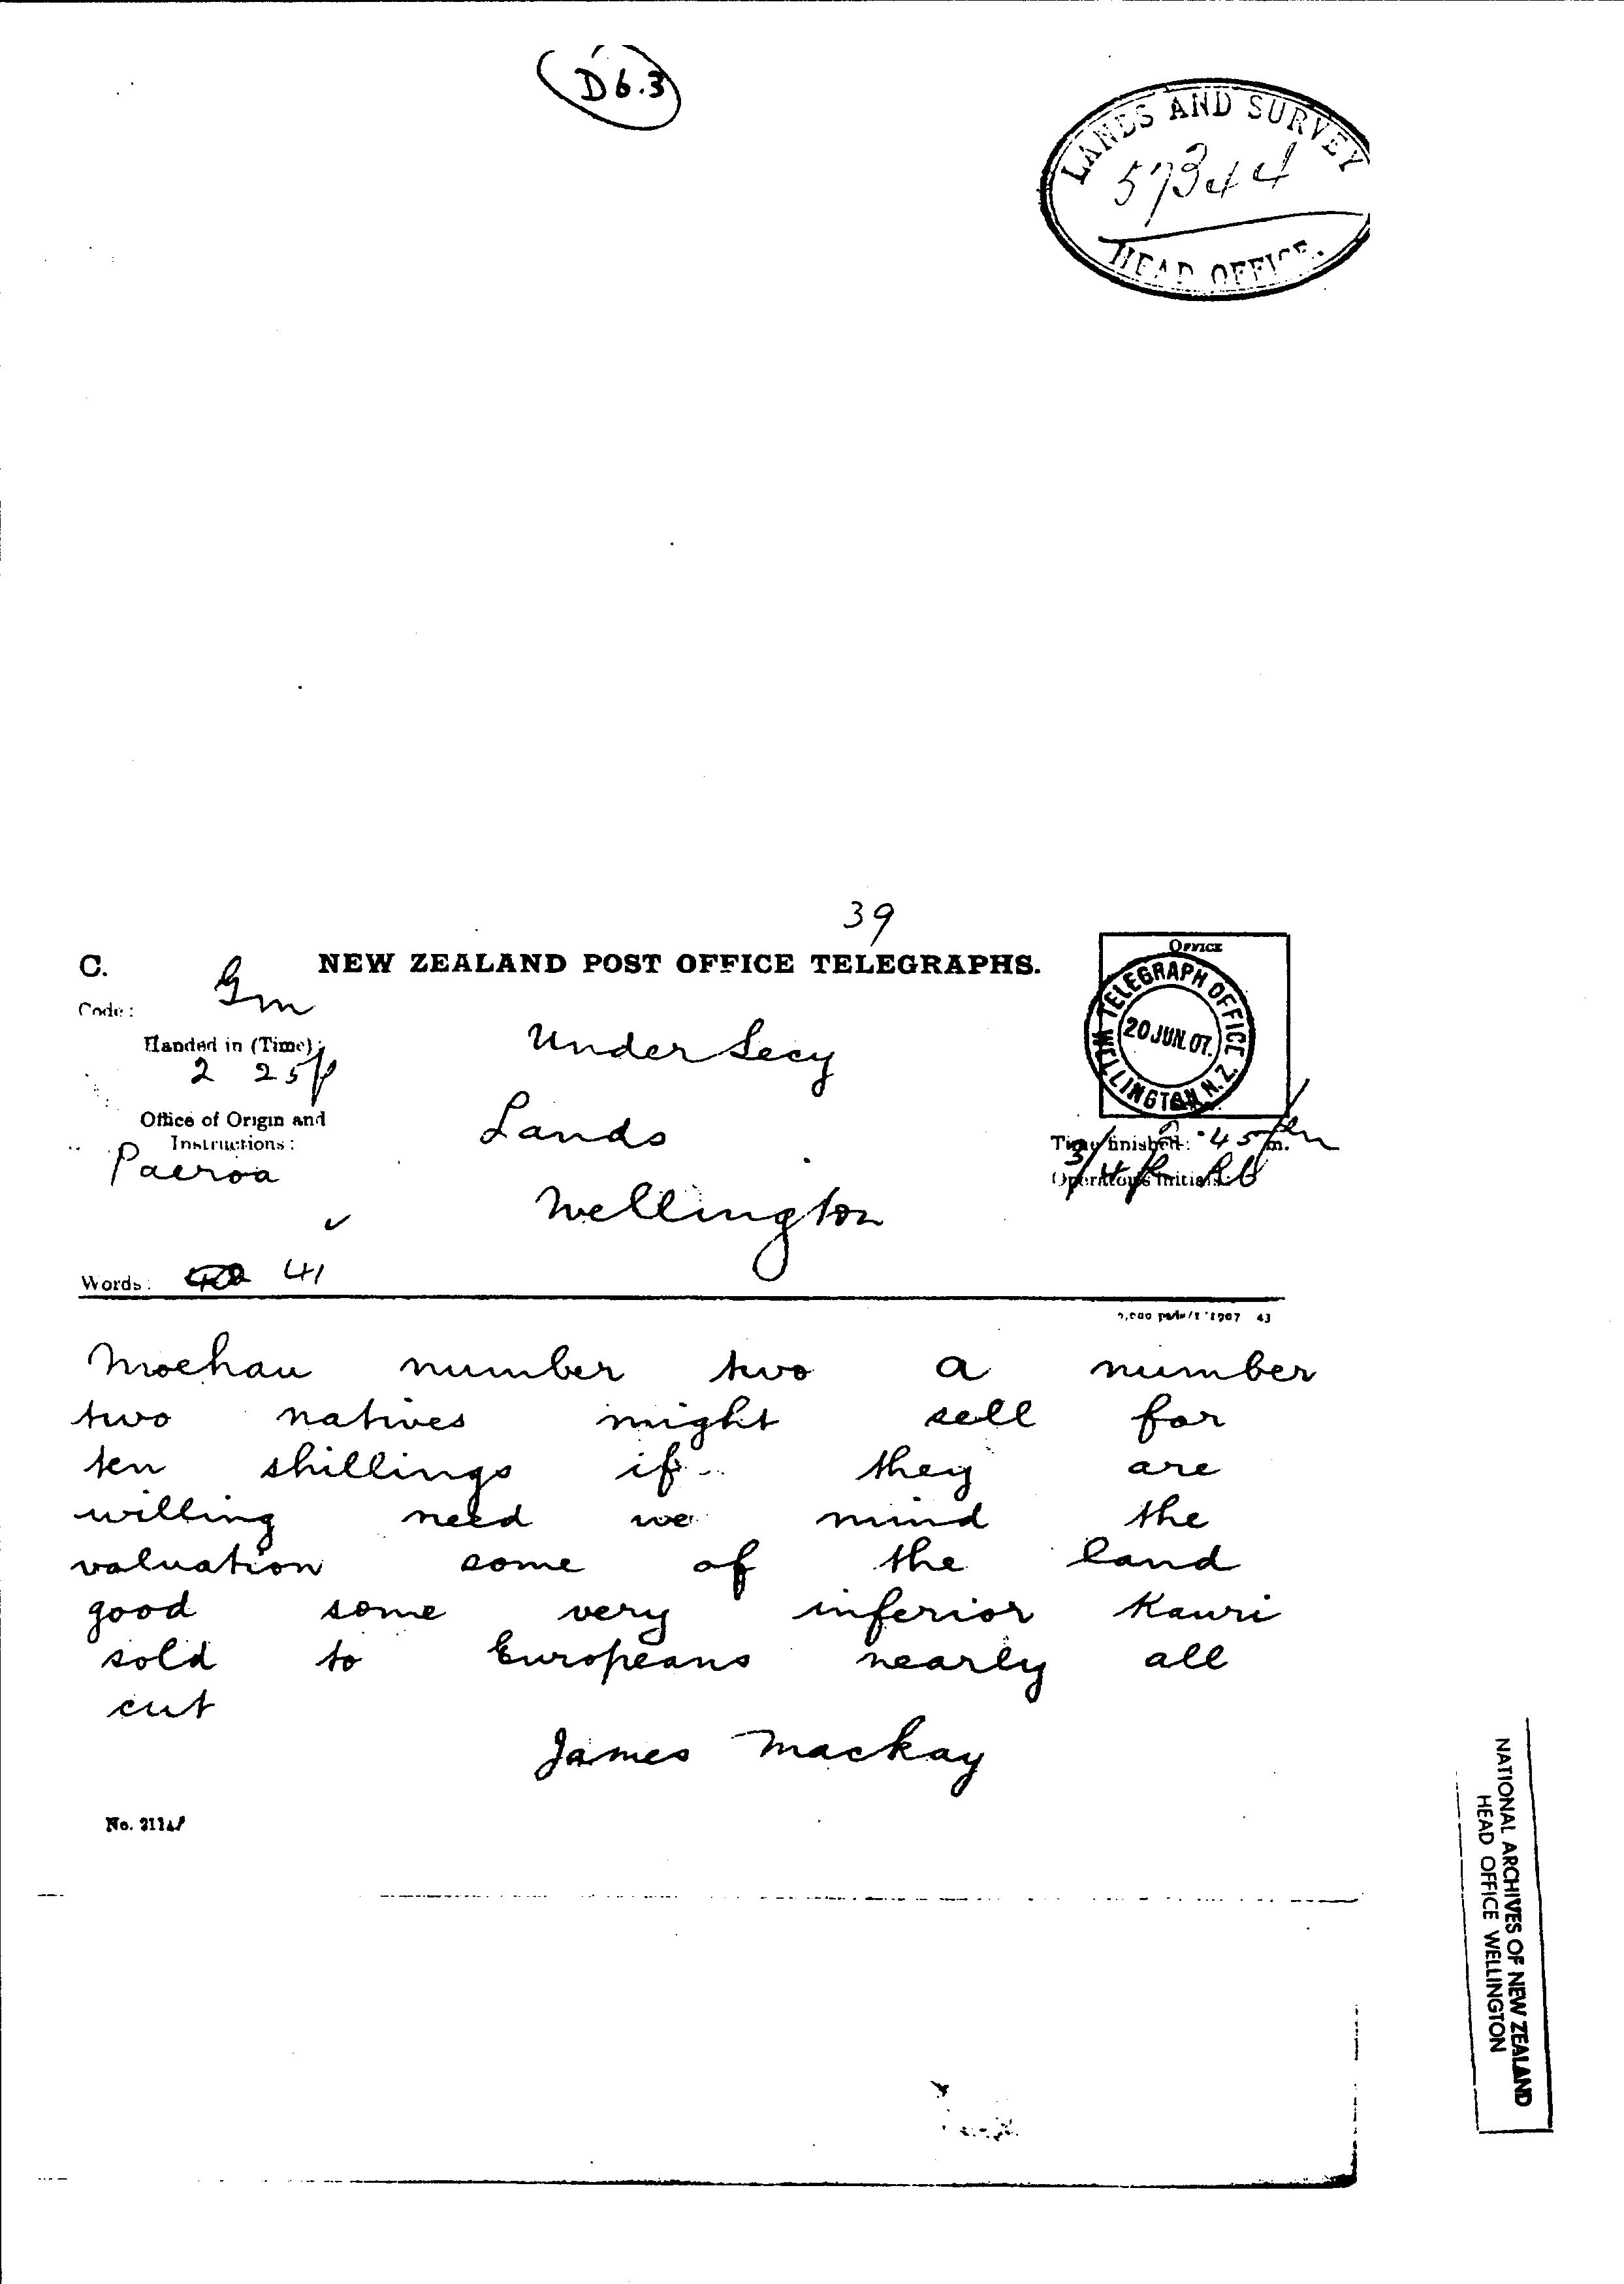 D6.3
LANDS AND SURVEY
57344
HEAD OFFICE.
39
C.
NEW ZEALAND POST OFFICE TELEGRAPHS.
OFFICE
Code: Gm
TELEGRAPH OFFICE
20 JUN. 07.
WELLINGTON N.Z.
Handed in (Time):
2 25p
Under Secy
Office of Origin and
Instructions:
Lands
Time finished: 2.45 pm.
Paeroa
Operator's Initials:
Wellington
Words: 41
Moehau number two a number
two natives might sell for
ten shillings if they are
willing need we mind the
valuation some of the land
good some very inferior Kauri
sold to Europeans nearly all
cut
James Mackay
NATIONAL ARCHIVES OF NEW ZEALAND
HEAD OFFICE WELLINGTON